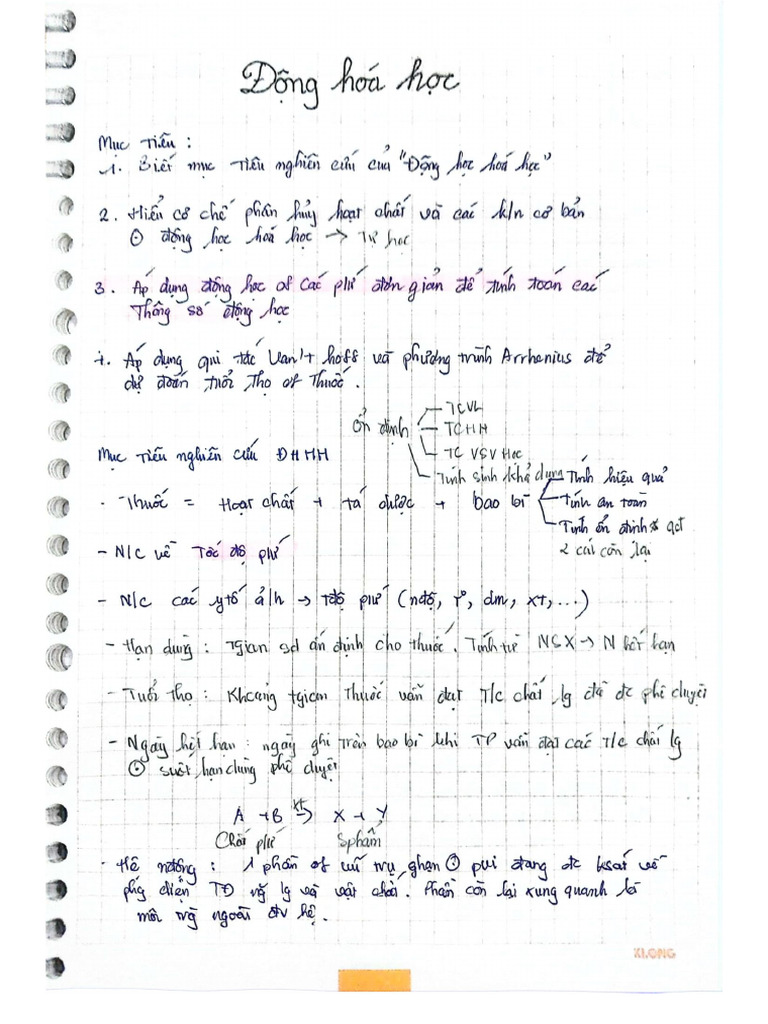 Động hóa học
Mục tiêu :
1. Biết mục tiêu nghiên cứu của "Động học hoá học"
2. Hiểu cơ chế phân hủy hoạt chất và các k/n cơ bản
⊙ động học hoá học → Tự học
3. Áp dụng động học of các pứ đơn giản để tính toán các
Thông số động học
4. Áp dụng qui tắc Van't hoff và phương trình Arrhenius để
dự đoán tuổi thọ of thuốc.
Ổn định
TCVL
TCHH
TC VSV Học
Tính sinh khả dụng
Mục tiêu nghiên cứu ĐHHH
- Thuốc = Hoạt chất + tá dược + bao bì
Tính hiệu quả
Tính an toàn
Tính ổn định * qđ
2 cái còn lại
- N/c về Tốc độ pứ
- N/c các ytố ả/h → tđộ pứ (nđộ, t°, dm, xt, ...)
- Hạn dùng : Tgian sd ấn định cho thuốc. Tính từ NSX → N hết hạn
- Tuổi thọ : Khoảng tgian thuốc vẫn đạt T/c chất lg đã đc phê duyệt
- Ngày hết hạn : ngày ghi trên bao bì khi TP vẫn đạt các T/c chất lg
⊙ suốt hạn dùng phê duyệt
A + B xt→ X + Y
Chất pứ Sphẩm
- Hệ nđộng : 1 phần of vũ trụ, ghạn ⊙ pvi đang đc ksát về
phg diện TĐ nặg lg và vật chất. Phần còn lại xung quanh là
môi trg ngoài đv hệ.
XI.ONG